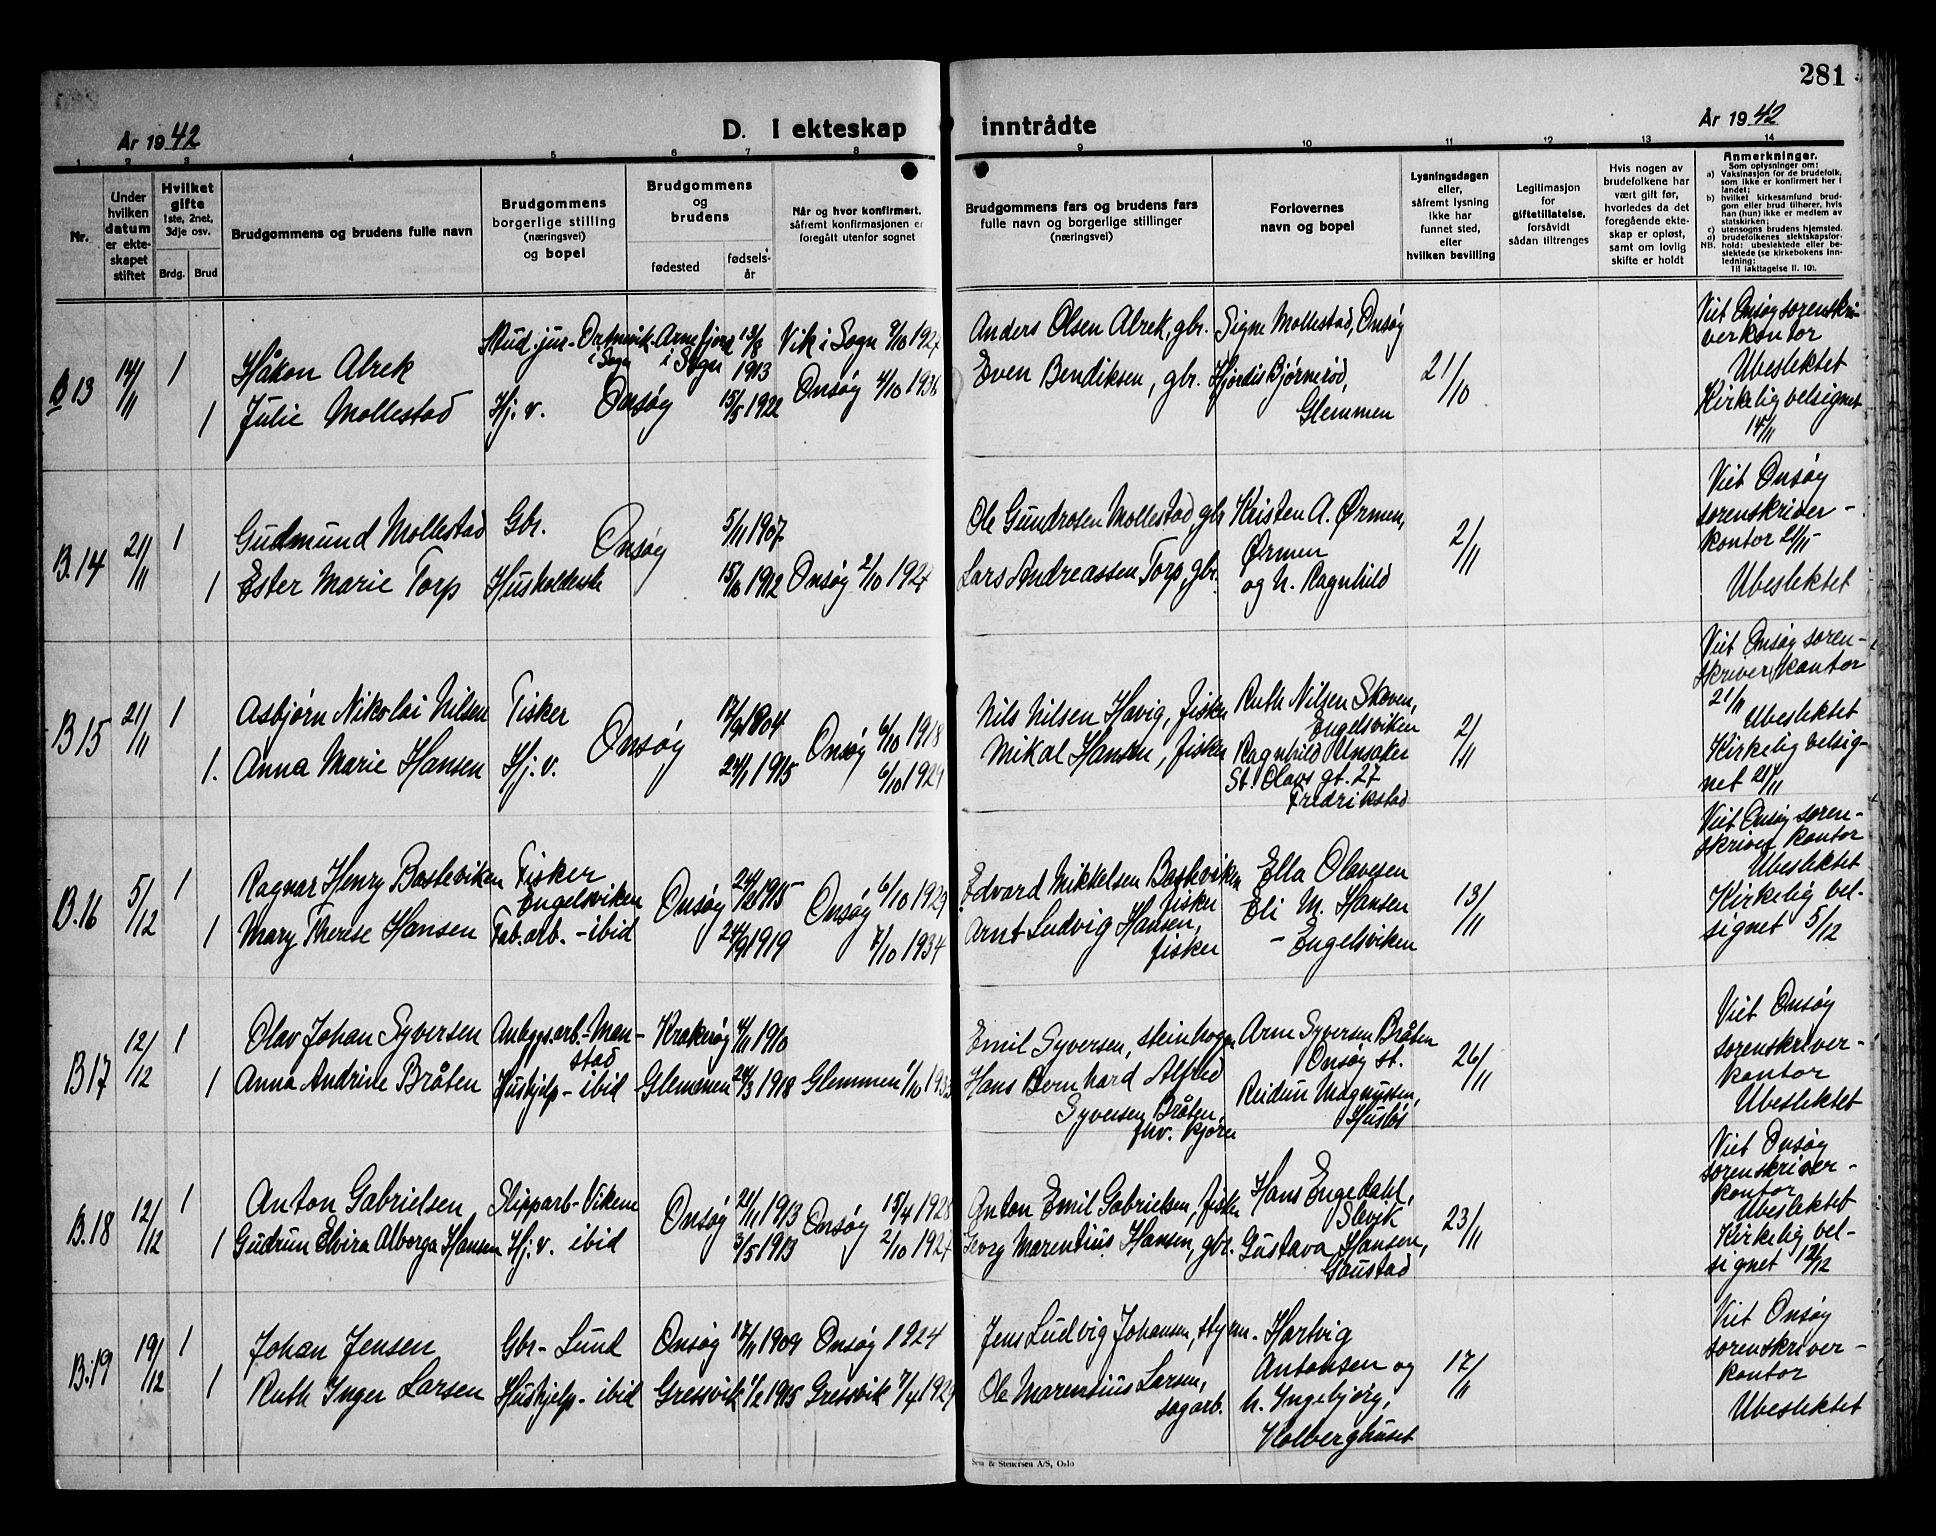 281
År 1942
D. I ekteskap inntrådte
År 1942
1 2 3 4 5 6 7 8 9 10 11 12 13 14
Nr.
Under hvilken datum er ekteskapet stiftet
Hvilket gifte
1ste, 2net, 3dje osv.
Brdg. Brud
Brudgommens og brudens fulle navn
Brudgommens borgerlige stilling (næringsvei) og bopel
Brudgommens og brudens
fødested
fødselsår
Når og hvor konfirmert, såfremt konfirmasjonen er foregått utenfor sognet
Brudgommens fars og brudens fars fulle navn og borgerlige stillinger (næringsvei)
Forlovernes navn og bopel
Lysningsdagen eller, såfremt lysning ikke har funnet sted, efter hvilken bevilling
Legitimasjon for giftetillatelse, forsåvidt sådan tiltrenges
Hvis nogen av brudefolkene har vært gift før, hvorledes da det foregående ekteskap er opløst, samt om lovlig skifte er holdt
Anmerkninger.
Som oplysninger om:
a) Vaksinasjon for de brudefolk, som ikke er konfirmert her i landet;
b) hvilket kirkesamfund brudgom eller brud tilhører, hvis han (hun) ikke er medlem av statskirken;
c) utensogns brudens hjemsted.
d) brudefolkenes slektskapsforhold: ubeslektede eller beslektede (se kirkebokens innledning:
NB. Til iakttagelse II. 10).
B 13 14/11 1 Håkon Alrek Stud. jur - Ortnevik i Sogn Arnefjord i Sogn 13/8 1913 Vik i Sogn 9/10 1927 Anders Olsen Alrek, gbr. Signe Mollestad, Onsøy 21/10 Viet Onsøy sorenskriverkontor
1 Julie Mollestad Hj. v. Onsøy 15/5 1922 Onsøy 4/10 1936 Even Bendiksen, gbr. Hjørdis Bjørnerød, Glemmen Ubeslektet
Kirkelig velsignet 14/11
B.14 21/11 1 Gudmund Mollestad Gbr. Onsøy 5/11 1907 Ole Gundrosen Mollestad, gbr Kristen A. Ørmen, Ørmen 2/11 Viet Onsøy sorenskriverkontor 21/11
1 Ester Marie Torp Husholderske 15/10 1912 Onsøy 2/10 1927 Lars Andreassen Torp, gbr. og h. Ragnhild Ubeslektet
B 15 21/11 1 Asbjørn Nikolai Nilsen Fisker Onsøy 17/9 1904 Onsøy 6/10 1918 Nils Nilsen Havig, fisker Ruth Nilsen Skoven, Engelsviken 2/11 Viet Onsøy sorenskriverkontor 21/11
1. Anna Marie Hansen Hj. v. 24/1 1915 6/10 1929 Mikal Hansen, fisker Ragnhild St. Olavs gt. 27 Fredrikstad Ubeslektet
Kirkelig velsignet 21/11
B.16 5/12 1 Ragnar Henry Basteviken Fisker Engelsviken Onsøy 24/2 1915 Onsøy 6/10 1929 Edvard Mikkelsen Basteviken fisker Ella Olavesen 13/11 Viet Onsøy sorenskriver kontor
1 Mary Therese Hansen Fab.arb. - ibid 24/9 1919 7/10 1934 Arnt Ludvig Hansen, fisker Eli M. Hansen - Engelsviken Ubeslektet
Kirkelig velsignet 5/12
B 17 12/12 1 Olav Johan Syversen Anleggsarb.- Manstad Kråkerøy 4/11 1910 Emil Syversen, steinhogger Arne Syversen Bråten Onsøy st. 26/11 Viet Onsøy sorenskriverkontor
1 Anna Andrine Bråten Hushjelp - ibid Glemmen 24/3 1918 Glemmen Hans Bernhard Alfred Syversen Bråten, fhv. kjøre Reidun Magnussen, Husløs Ubeslektet
B.18 12/12 1 Anton Gabrielsen Slipparb - Vikene Onsøy 21/11 1913 Onsøy 15/4 1928 Anton Emil Gabrielsen, fisker Hans Engedahl, Slevik 23/11 Viet Onsøy sorenskriverkontor
1 Gudrun Elvira Alborga Hansen Hj. v. ibid 3/5 1913 2/10 1927 Georg Marentius Hansen, gbr. Gustava Hansen, Gaustad Ubeslektet
Kirkelig velsignet 12/12
B.19 19/12 1 Johan Jensen Gbr - Lund Onsøy 17/11 1909 Onsøy 1924 Jens Ludvig Johansen, styrm. Hartvig Antonsen og 17/11 Viet Onsøy sorenskriverkontor
1 Ruth Inger Larsen Hushjelp - ibid Gressvik 1/2 1915 Gressvik 7/4 1929 Ole Marentius Larsen, sagarb. h. Ingebjørg, Holberghuset Ubeslektet
Sem & Stenersen A/S, Oslo